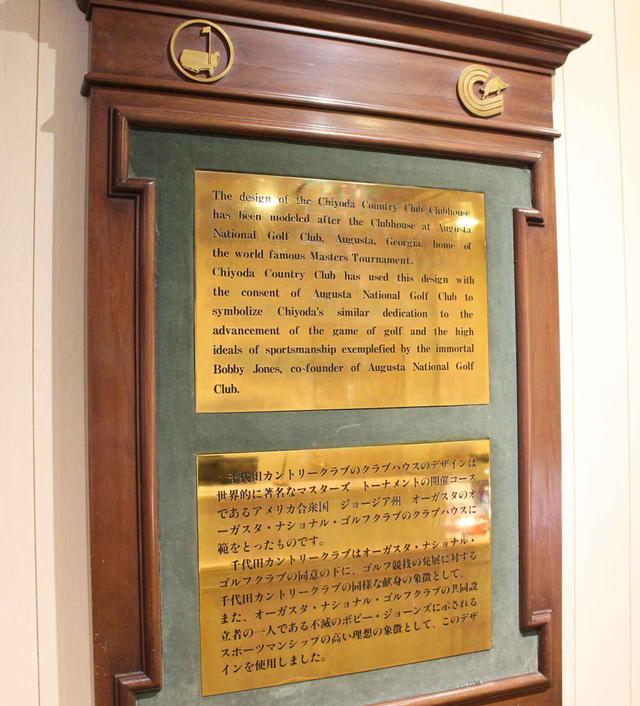 The design of the Chiyoda Country Club Clubhouse
has been modeled after the Clubhouse at Augusta
National Golf Club, Augusta, Georgia, home of
the world famous Masters Tournament.
Chiyoda Country Club has used this design with
the consent of Augusta National Golf Club to
symbolize Chiyoda's similar dedication to the
advancement of the game of golf and the high
ideals of sportsmanship exemplefied by the immortal
Bobby Jones, co-founder of Augusta National Golf
Club.
千代田カントリークラブのクラブハウスのデザインは
世界的に著名なマスターズ トーナメントの開催コース
であるアメリカ合衆国 ジョージア州 オーガスタのオ
ーガスタ・ナショナル・ゴルフクラブのクラブハウスに
範をとったものです。
千代田カントリークラブはオーガスタ・ナショナル・
ゴルフクラブの同意の下に、ゴルフ競技の発展に対する
千代田カントリークラブの同様な献身の象徴として、
また、オーガスタ・ナショナル・ゴルフクラブの共同設
立者の一人である不滅のボビー・ジョーンズに示される
スポーツマンシップの高い理想の象徴として、このデザ
インを使用しました。